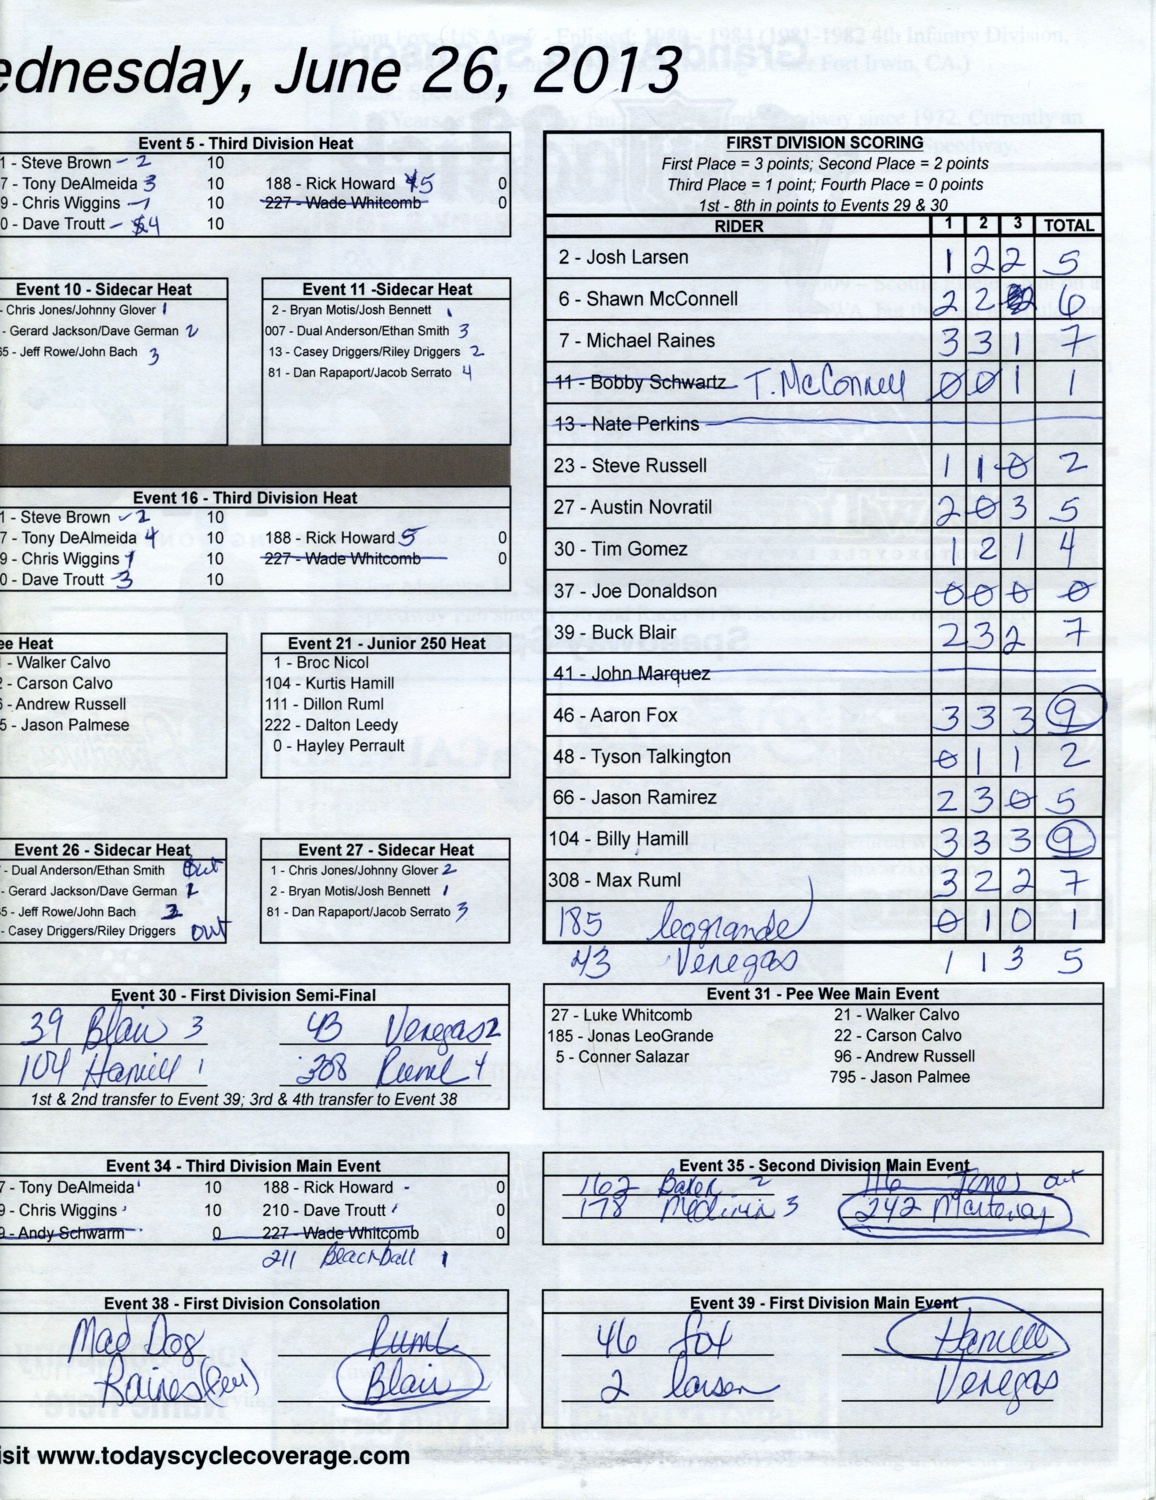 ednesday, June 26, 2013
Event 5 - Third Division Heat
1 - Steve Brown - 2 10
7 - Tony DeAlmeida 3 10 188 - Rick Howard 5 0
9 - Chris Wiggins - 1 10 227 - Wade Whitcomb 0
0 - Dave Troutt - 4 10
Event 10 - Sidecar Heat
- Chris Jones/Johnny Glover 1
- Gerard Jackson/Dave German 2
5 - Jeff Rowe/John Bach 3
Event 11 -Sidecar Heat
2 - Bryan Motis/Josh Bennett 1
007 - Dual Anderson/Ethan Smith 3
13 - Casey Driggers/Riley Driggers 2
81 - Dan Rapaport/Jacob Serrato 4
Event 16 - Third Division Heat
1 - Steve Brown - 2 10
7 - Tony DeAlmeida 4 10 188 - Rick Howard 5 0
9 - Chris Wiggins 1 10 227 - Wade Whitcomb 0
0 - Dave Troutt - 3 10
ee Heat
- Walker Calvo
- Carson Calvo
- Andrew Russell
5 - Jason Palmese
Event 21 - Junior 250 Heat
1 - Broc Nicol
104 - Kurtis Hamill
111 - Dillon Ruml
222 - Dalton Leedy
0 - Hayley Perrault
Event 26 - Sidecar Heat
- Dual Anderson/Ethan Smith out
- Gerard Jackson/Dave German 1
5 - Jeff Rowe/John Bach 2
- Casey Driggers/Riley Driggers out
Event 27 - Sidecar Heat
1 - Chris Jones/Johnny Glover 2
2 - Bryan Motis/Josh Bennett 1
81 - Dan Rapaport/Jacob Serrato 3
Event 30 - First Division Semi-Final
39 Blair 3 43 Venegas 2
104 Hamill 1 308 Ruml 4
1st & 2nd transfer to Event 39; 3rd & 4th transfer to Event 38
Event 34 - Third Division Main Event
7 - Tony DeAlmeida 10 188 - Rick Howard - 0
9 - Chris Wiggins 10 210 - Dave Troutt 0
9 - Andy Schwarm 0 227 - Wade Whitcomb 0
211 1
Event 38 - First Division Consolation
Mad Dog Ruml
Raines Blair
isit www.todayscyclecoverage.com
FIRST DIVISION SCORING
First Place = 3 points; Second Place = 2 points
Third Place = 1 point; Fourth Place = 0 points
1st - 8th in points to Events 29 & 30
RIDER 1 2 3 TOTAL
2 - Josh Larsen 1 2 2 5
6 - Shawn McConnell 2 2 2 6
7 - Michael Raines 3 3 1 7
11 - Bobby Schwartz T. McConnell 0 0 1 1
13 - Nate Perkins
23 - Steve Russell 1 1 0 2
27 - Austin Novratil 2 0 3 5
30 - Tim Gomez 1 2 1 4
37 - Joe Donaldson 0 0 0 0
39 - Buck Blair 2 3 2 7
41 - John Marquez
46 - Aaron Fox 3 3 3 9
48 - Tyson Talkington 0 1 1 2
66 - Jason Ramirez 2 3 0 5
104 - Billy Hamill 3 3 3 9
308 - Max Ruml 3 2 2 7
185 leogrande 0 1 0 1
43 Venegas 1 1 3 5
Event 31 - Pee Wee Main Event
27 - Luke Whitcomb 21 - Walker Calvo
185 - Jonas LeoGrande 22 - Carson Calvo
5 - Conner Salazar 96 - Andrew Russell
795 - Jason Palmee
Event 35 - Second Division Main Event
162 Baker 2 116 Jones out
178 3 242
Event 39 - First Division Main Event
46 fox Hamill
2 larsen Venegas